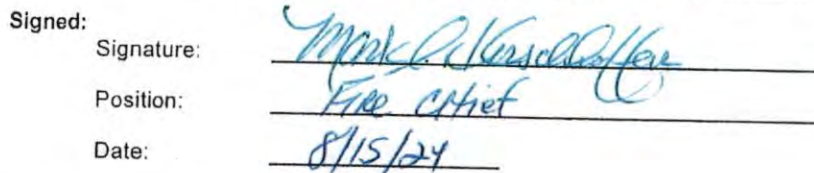 Signed:
Signature: Mark
Position: Fire Chief
Date: 8/15/24